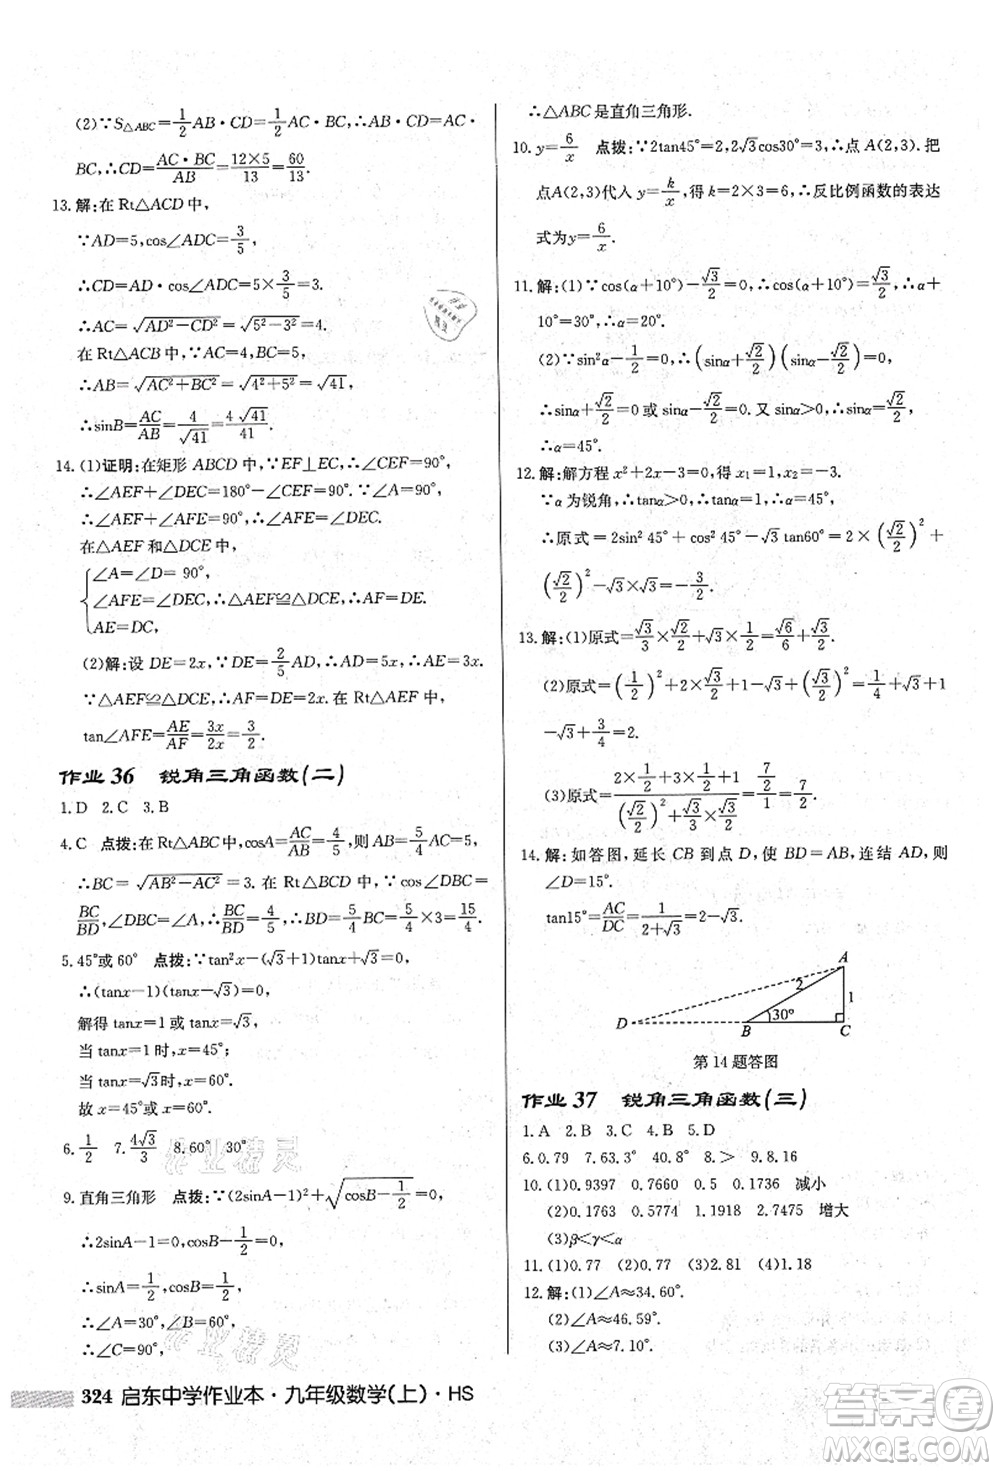 (2)∵S△ABC=1/2AB·CD=1/2AC·BC,∴AB·CD=AC·
BC,∴CD=AC·BC/AB=12×5/13=60/13.
13.解:在Rt△ACD中,
∵AD=5,cos∠ADC=3/5,
∴CD=AD·cos∠ADC=5×3/5=3.
∴AC=√(AD²-CD²)=√(5²-3²)=4.
在Rt△ACB中,∵AC=4,BC=5,
∴AB=√(AC²+BC²)=√(4²+5²)=√41,
∴sinB=AC/AB=4/√41=4√41/41.
14.(1)证明:在矩形ABCD中,∵EF⊥EC,∴∠CEF=90°,
∴∠AEF+∠DEC=180°-∠CEF=90°.
∵∠AEF+∠AFE=90°,∴∠AFE=∠DEC.
在△AEF和△DCE中,
∠A=∠D=90°,
∠AFE=∠DEC,∴△AEF≌△DCE,∴AF=DE.
AE=DC,
(2)解:设DE=2x,∵DE=2/5AD,∴AD=5x,∴AE=3x.
∵△AEF≌△DCE,∴AF=DE=2x.在Rt△AEF中,
tan∠AFE=AE/AF=3x/2x=3/2.
作业36 锐角三角函数(二)
1.D 2.C 3.B
4.C 点拨:在Rt△ABC中,cosA=AC/AB=4/5,则AB=5/4AC=5,
∴BC=√(AB²-AC²)=3.在Rt△BCD中,∵cos∠DBC=
BC/BD,∠DBC=∠A,∴BC/BD=4/5,∴BD=5/4BC=5/4×3=15/4.
5.45°或60° 点拨:∵tan²x-(√3+1)tanx+√3=0,
∴(tanx-1)(tanx-√3)=0,
解得tanx=1或tanx=√3,
当tanx=1时,x=45°;
当tanx=√3时,x=60°.
故x=45°或x=60°.
6.1/2 7.4√3/3 8.60° 30°
9.直角三角形 点拨:∵(2sinA-1)²+√(cosB-1/2)=0,
∴2sinA-1=0,cosB-1/2=0,
∴sinA=1/2,cosB=1/2,
∴∠A=30°,∠B=60°.
∴∠C=90°,
∴△ABC是直角三角形.
10.y=6/x 点拨:∵2tan45°=2,2√3cos30°=3,∴点A(2,3).把
点A(2,3)代入y=k/x,得k=2×3=6,∴反比例函数的表达
式为y=6/x.
11.解:(1)∵cos(α+10°)-√3/2=0,∴cos(α+10°)=√3/2,∴α+
10°=30°,∴α=20°.
(2)∵sin²α-1/2=0,∴(sinα+√2/2)(sinα-√2/2)=0,
∴sinα+√2/2=0或sinα-√2/2=0.又sinα>0,∴sinα=√2/2,
∴α=45°.
12.解:解方程x²+2x-3=0,得x₁=1,x₂=-3.
∵α为锐角,∴tanα>0,∴tanα=1,∴α=45°,
∴原式=2sin²45°+cos²45°-√3tan60°=2×(√2/2)²+
(√2/2)²-√3×√3=-3/2.
13.解:(1)原式=√3/2×√2/2+√3×1/2=√6/6+√3/2.
(2)原式=(1/2)²+2×√3/2+1×(√3/2)²=1/4+√3+1
-√3+3/4=2.
(3)原式=(2×1/2+1/2×1/2)/((√2/2)²+√3/3×√3/2)=(7/2)/1=7/2.
14.解:如答图,延长CB到点D,使BD=BA,连结AD,则
∠D=15°.
tan15°=AC/DC=1/(2+√3)=2-√3.
A
2
1
30°
D
B
C
第14题答图
作业37 锐角三角函数(三)
1.A 2.B 3.C 4.B 5.D
6.0.79 7.63.3° 40.8° 8.> 9.8.16
10.(1)0.9397 0.7660 0.5 0.1736 减小
(2)0.1763 0.5774 1.1918 2.7475 增大
(3)β<γ<α
11.(1)0.37 (2)0.77 (3)0.21 (4)1.18
12.解:(1)∠A≈34.60°.
(2)∠A≈46.59°.
(3)∠A≈7.10°.
324 启东中学作业本·九年级数学(上)·HS
答案圈
MXQE.COM